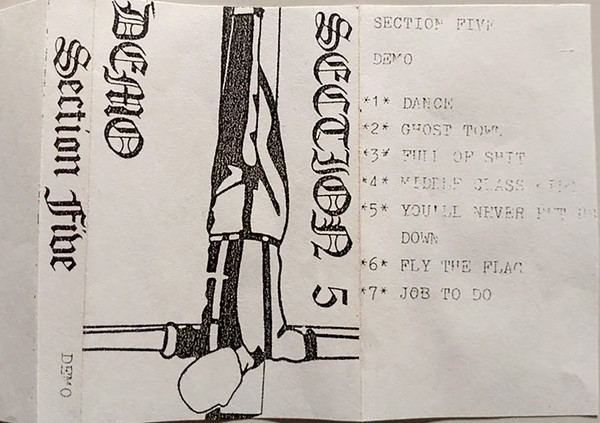 Section Five
DEMO
DEMO
SECTION 5
SECTION FIVE
DEMO
*1* DANCE
*2* GHOST TOWN
*3* FULL OF SHIT
*4* MIDDLE CLASS
*5* YOU'LL NEVER PUT
DOWN
*6* FLY THE FLAG
*7* JOB TO DO